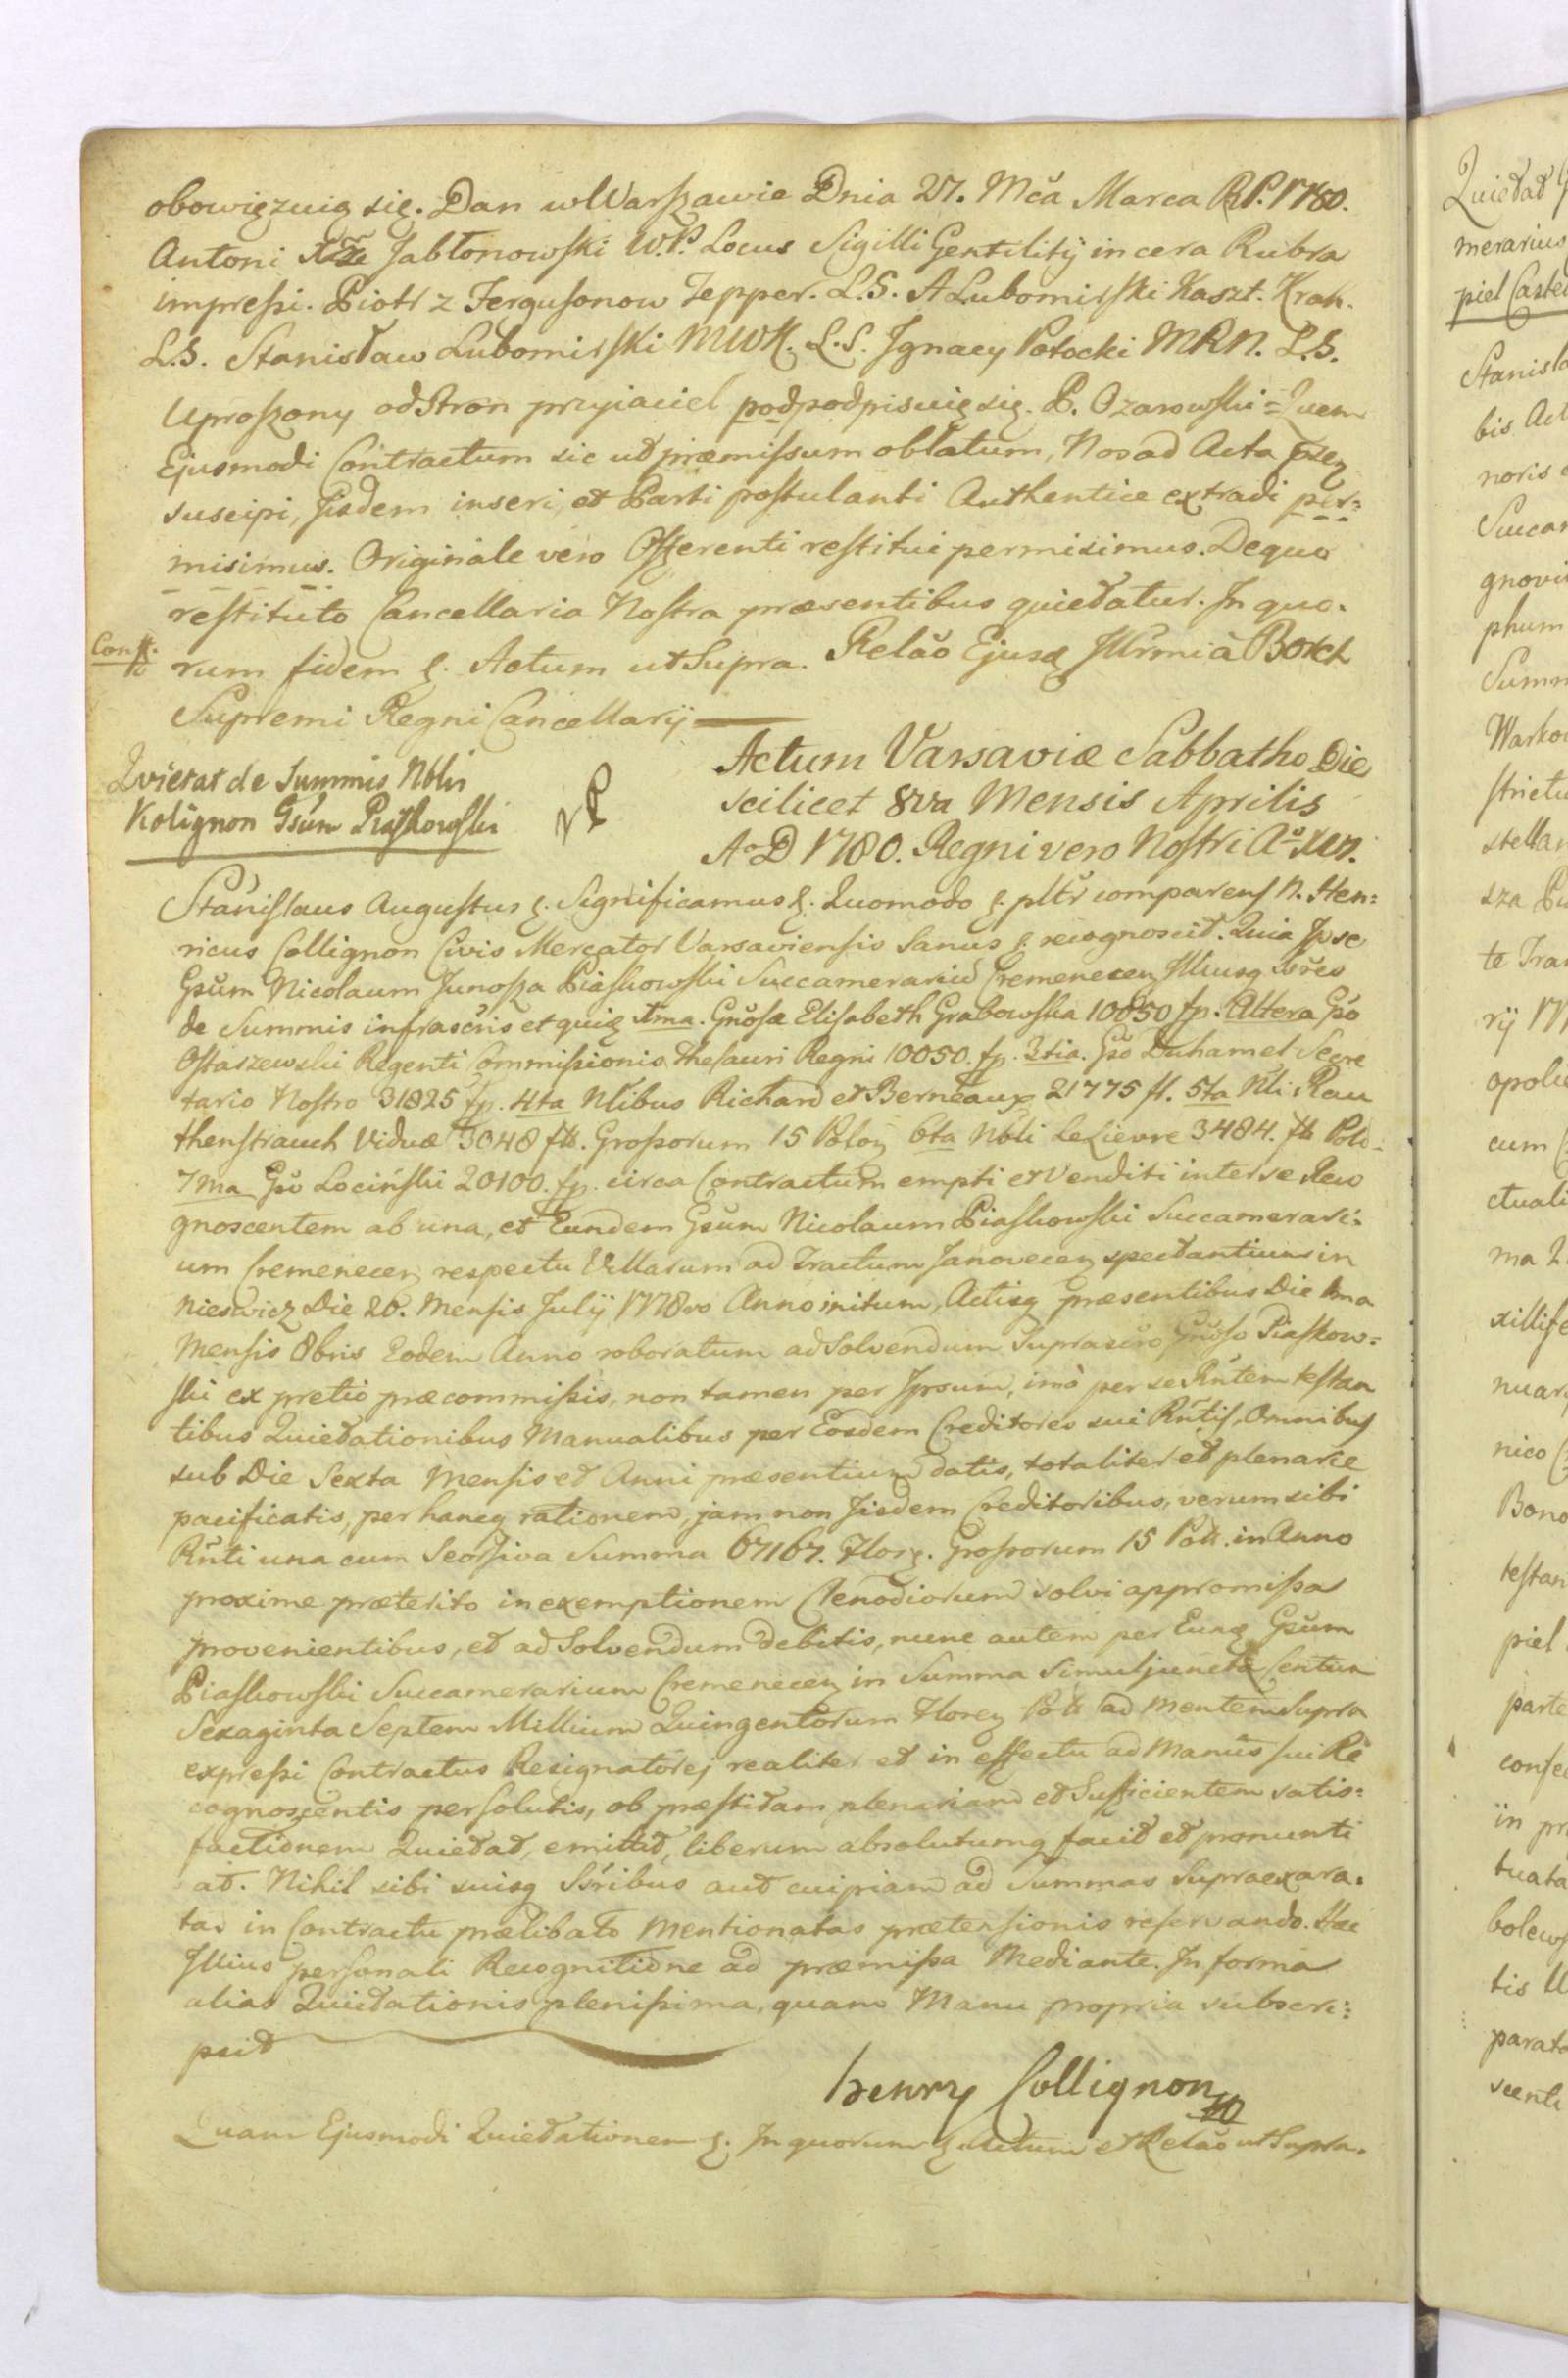 obowięzuią się. Dan w Warszawie Dnia 27. Mca Marca R.P. 1780.
Antoni Xże Jabłonowski W.P. Locus Sigilli Gentilitij in cera Rubra
impressi. Piotr z Fergusonow Tepper. L.S. A Lubomirski Kaszt. Krak.
L.S. Stanisław Lubomirski MWK. L.S. Jgnacy Potocki MRN. L.S.
Uproszony od Stron przyiaciel podpodpisuię się. P. Ozarowski = Quem
Ejusmodi Contractum sic ut præmissum oblatum, Nos ad Acta prŋ
suscipi, Jisdem inseri, et Parti postulanti Authentice extradi per=
misimus. Originale vero Offerenti restitui permisimus. De quo
restituto Cancellaria Nostra præsentibus quietatur. In quo.
Con rum fidem &. Actum ut Supra. Relão Ejusq Jllrmi à Borch
Supremi Regni Cancellarij
Qvietat de Summis Nblis
Kolignon Gsum Piaskowski
Actum Varsaviæ Sabbatho Die
scilicet 8va Mensis Aprilis
Ao D 1780. Regni vero Nostri Ao XVI.
Stanislaus Augustus &. Significamus &. Quomodo &. pltr comparens N. Hen=
ricus Collignon Civis Mercator Varsaviensis Sanus &. recognoscit. Quia Jpse
Gsum Nicolaum Junosza Piaskowski Succamerariũ Cremenecen Jlliusq Ssres
de Summis infrascris et quiq 1ma. Gnosæ Elisabeth Grabowska 10050 fp. Altera Gso
Ostaszewski Regenti Commissionis Thesauri Regni 10050. fp. 3tia. Gso Duhamel Secre
tario Nostro 31825 fp. 4ta Nlibus Richard et Berneaux 21775 fl. 5ta Nli Rau
thenstrauch Viduæ 3048 fl. Grossorum 15 Polon 6ta Nbli LeLievre 3484. fl Polo.
7ma Gso Lociński 20100. fp. circa Contractum empti et Venditi inter se Reco
gnoscentem ab una, et Eundem Gsum Nicolaum Piaskowski Succamerari=
um Cremenecen respectu Villarum ad Tractum Janovecen spectantium in
Nieswicz Die 26. Mensis Julij 1778vo Anno initum, Actisq præsentibus Die 1ma
Mensis 8bris Eodem Anno roboratum ad Solvendum Suprascro Gnoso Piaskow=
ski ex pretio præcommissis, non tamen per Jpsum, imò per se Rntem testan
tibus Quietationibus Manualibus per Eosdem Creditores sui Rntis, Omnibus
sub Die Sexta Mensis et Anni præsentium datis, totaliter et plenarie
pacificatis, per hancq rationem, jam non Jisdem Creditoribus, verum sibi
Rnti una cum Seorsiva Summa 67167. Flor. Grossorum 15 Poll. in Anno
proxime præterito in exemptionem Clenodiorum solvi appromissa
provenientibus, et ad Solvendum debitis, nunc autem per Eunq Gsum
Piaskowski Succamerarium Cremenecen in Summa Simul juncta Centum
Sexaginta Septem Millium Quingentorum Floren Poll ad Mentem Supra
expressi Contractus Resignatorej realiter et in effectu ad Manus sui Re
cognoscentis persolutis, ob præstitam plenariam et Sufficientem satis=
factionem Quietat, emittit, liberum absolutumq facit et pronunti
at. Nihil sibi suisq Ssribus aut cuipiam ad Summas Supraexara.
tas in Contractu prælibato Mentionatas prætensionis reservando. Hac
Jllius personali Recognitione ad præmissa Mediante. In forma
alias Quietationis plenissima, quam Manu propria subscri=
psit
henry Collignon
Quam Ejusmodi Quietationem &. In quorum &. Actum et Relão ut Supra.
Quietat
merarius
piel Castel
Stanisla
bis Act
noris
Succam
gnovi
phum
Summ
Warkow
strictu
stellan
sza Pi
te Tran
rij
opolie
cum
ctuali
ma
xillife
nuar
nico
Bono
testan
piel
parte
confe
in pr
tuata
bolews
tis
parato
scenti